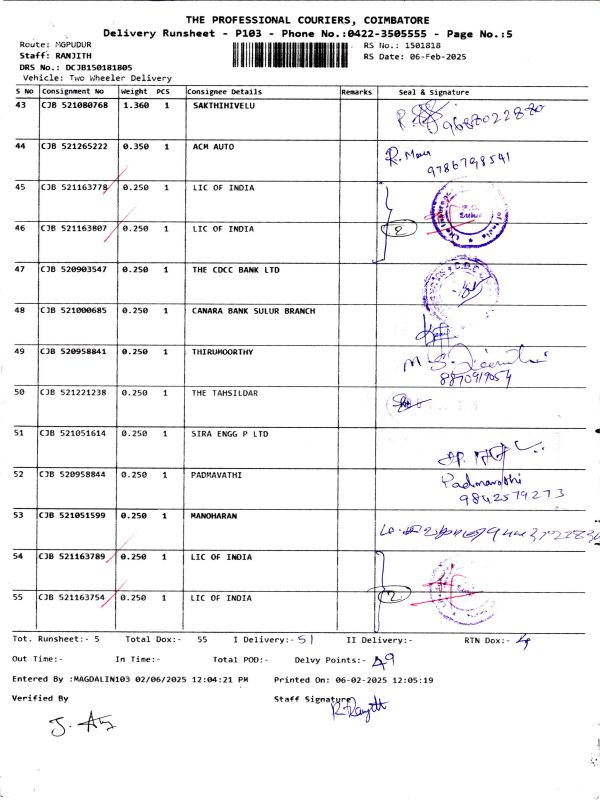 THE PROFESSIONAL COURIERS, COIMBATORE
Delivery Runsheet - P103 - Phone No.:0422-3505555 - Page No.:5
Route: MGPUDUR RS No.: 1501818
Staff: RANJITH RS Date: 06-Feb-2025
DRS No.: DCJB150181805
Vehicle: Two Wheeler Delivery
S No Consignment No Weight PCS Consignee Details Remarks Seal & Signature
43 CJB 521080768 1.360 1 SAKTHIHIVELU
9688022880
44 CJB 521265222 0.350 1 ACM AUTO R. Mani
9786798541
45 CJB 521163778 0.250 1 LIC OF INDIA
46 CJB 521163807 0.250 1 LIC OF INDIA 2
47 CJB 520903547 0.250 1 THE CDCC BANK LTD
48 CJB 521000685 0.250 1 CANARA BANK SULUR BRANCH
49 CJB 520958841 0.250 1 THIRUMOORTHY
8870917054
50 CJB 521221238 0.250 1 THE TAHSILDAR
51 CJB 521051614 0.250 1 SIRA ENGG P LTD
52 CJB 520958844 0.250 1 PADMAVATHI Padmavathi
9842579273
53 CJB 521051599 0.250 1 MANOHARAN
54 CJB 521163789 0.250 1 LIC OF INDIA
55 CJB 521163754 0.250 1 LIC OF INDIA 2
Tot. Runsheet:- 5 Total Dox:- 55 I Delivery:- 51 II Delivery:- RTN Dox:- 4
Out Time:- In Time:- Total POD:- Delvy Points:- 49
Entered By :MAGDALIN103 02/06/2025 12:04:21 PM Printed On: 06-02-2025 12:05:19
Verified By Staff Signature
R. Ranjith